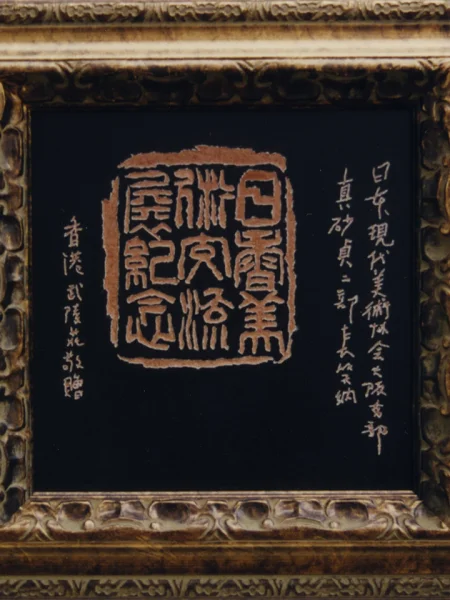 日本現代美術协会大阪支部
真砂貞二部長笑納
日香美
術交流
展紀念
香港武陵莊敬贈